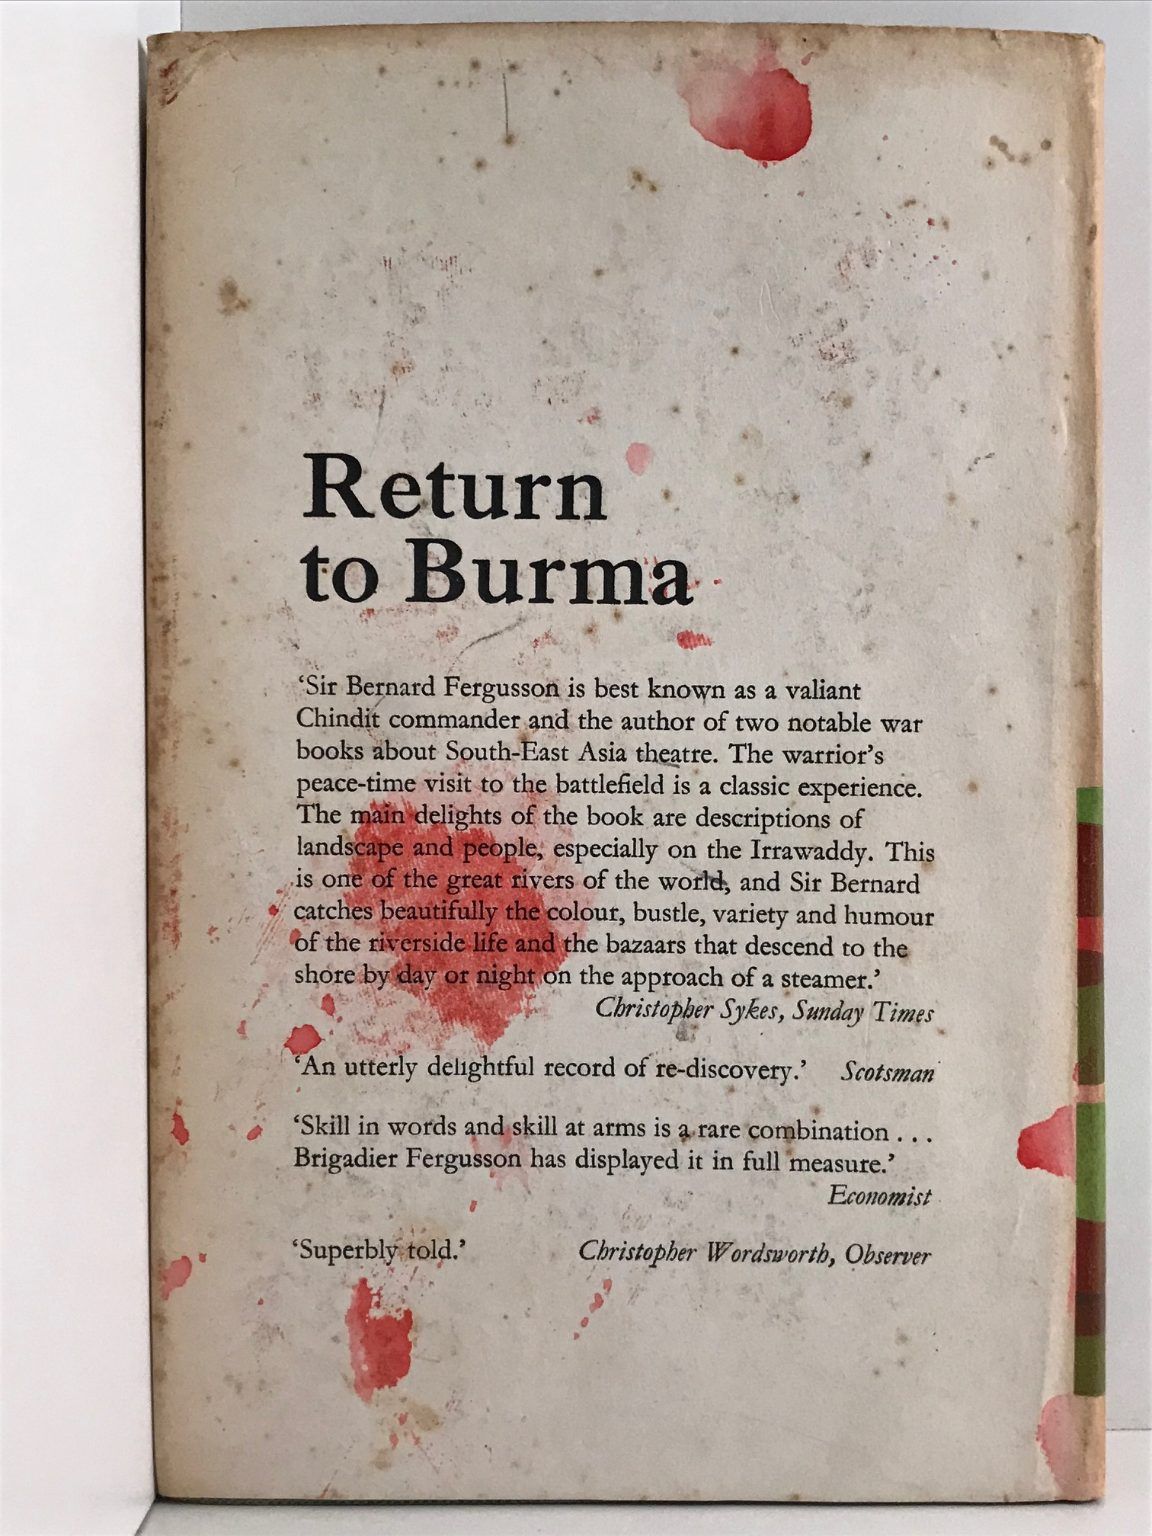 Return
to Burma
‘Sir Bernard Fergusson is best known as a valiant
Chindit commander and the author of two notable war
books about South-East Asia theatre. The warrior’s
peace-time visit to the battlefield is a classic experience.
The main delights of the book are descriptions of
landscape and people, especially on the Irrawaddy. This
is one of the great rivers of the world, and Sir Bernard
catches beautifully the colour, bustle, variety and humour
of the riverside life and the bazaars that descend to the
shore by day or night on the approach of a steamer.’
Christopher Sykes, Sunday Times
‘An utterly delightful record of re-discovery.’ Scotsman
‘Skill in words and skill at arms is a rare combination . . .
Brigadier Fergusson has displayed it in full measure.’
Economist
‘Superbly told.’ Christopher Wordsworth, Observer